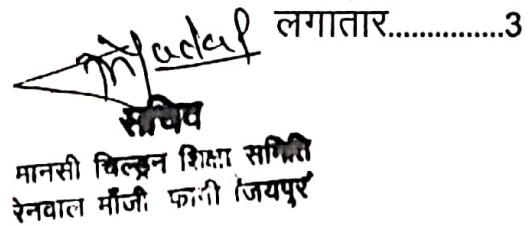 लगातार...............3
सचिव
मानसी चिल्ड्रन शिक्षा समिति
रेनवाल माँजी फागी (जयपुर